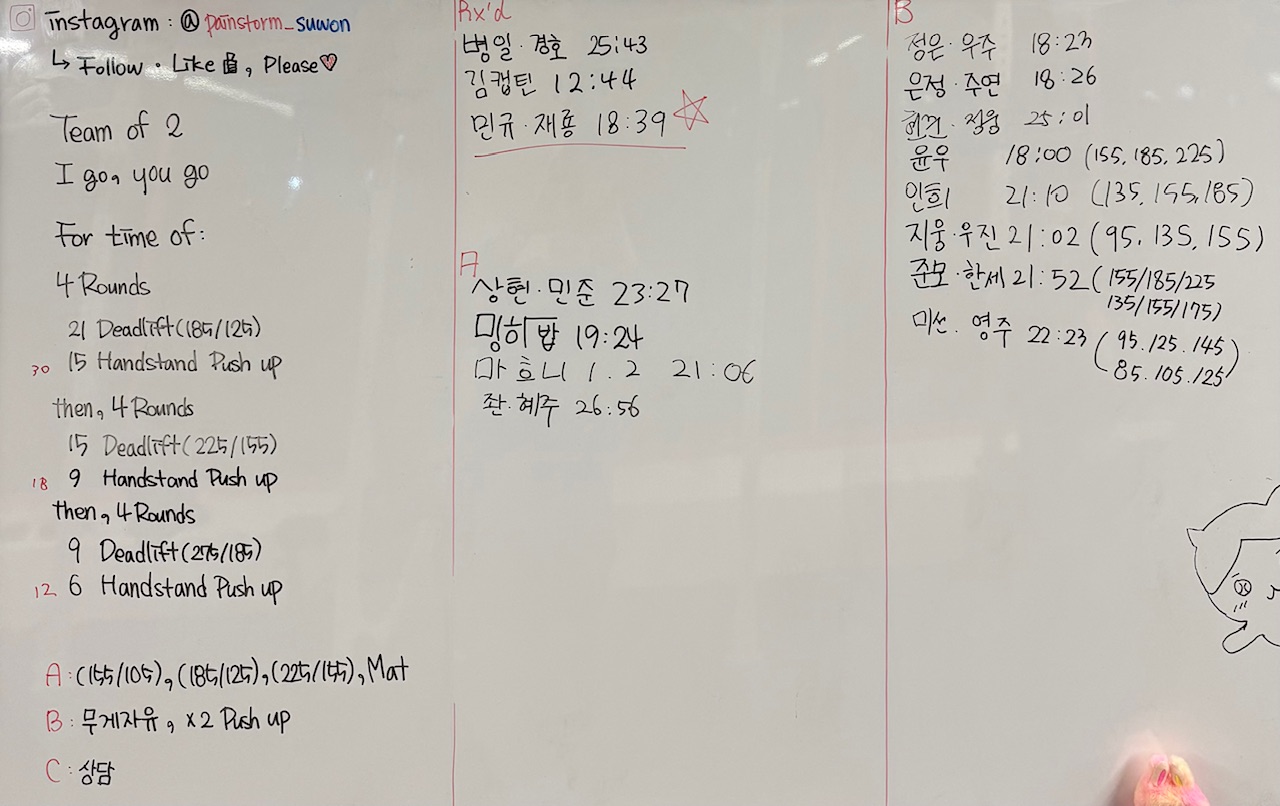 instagram : @ painstorm_suwon
↳ Follow · Like 👍, Please♡
Team of 2
I go, you go
For time of:
4 Rounds
21 Deadlift (185/125)
30 15 Handstand Push up
then, 4 Rounds
15 Deadlift (225/155)
18 9 Handstand Push up
then, 4 Rounds
9 Deadlift (275/185)
12 6 Handstand Push up
A : (155/105), (185/125), (225/155), Mat
B : 무게자유, x2 Push up
C : 상담
Rx'd
병일·경호 25:43
김캡틴 12:44
민규·재용 18:39 ☆
A
상현·민준 23:27
밍히밥 19:24
마호니 1.2 21:06
좐·혜주 26:56
B
정은·우주 18:23
은정·주연 18:26
정웅 25:01
윤우 18:00 (155, 185, 225)
인희 21:10 (135, 155, 185)
지웅·우진 21:02 (95, 135, 155)
준모·한세 21:52 (155/185/225
135/155/175)
미선. 영주 22:23 (95.125.145
85.105.125)